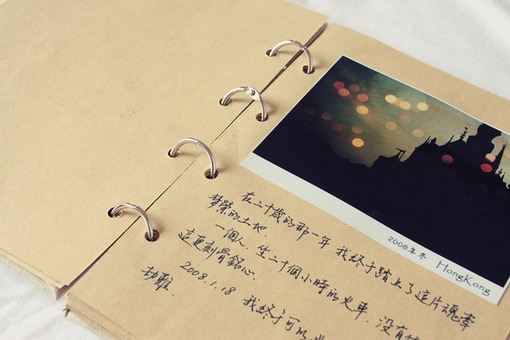 2008年冬 HongKong
在二十歲的那一年 我終于踏上了這片魂牽
梦縈的土地
一個人.坐二十個小時的火車.沒有
這更刻骨銘心.
2008.1.18
我終于可以